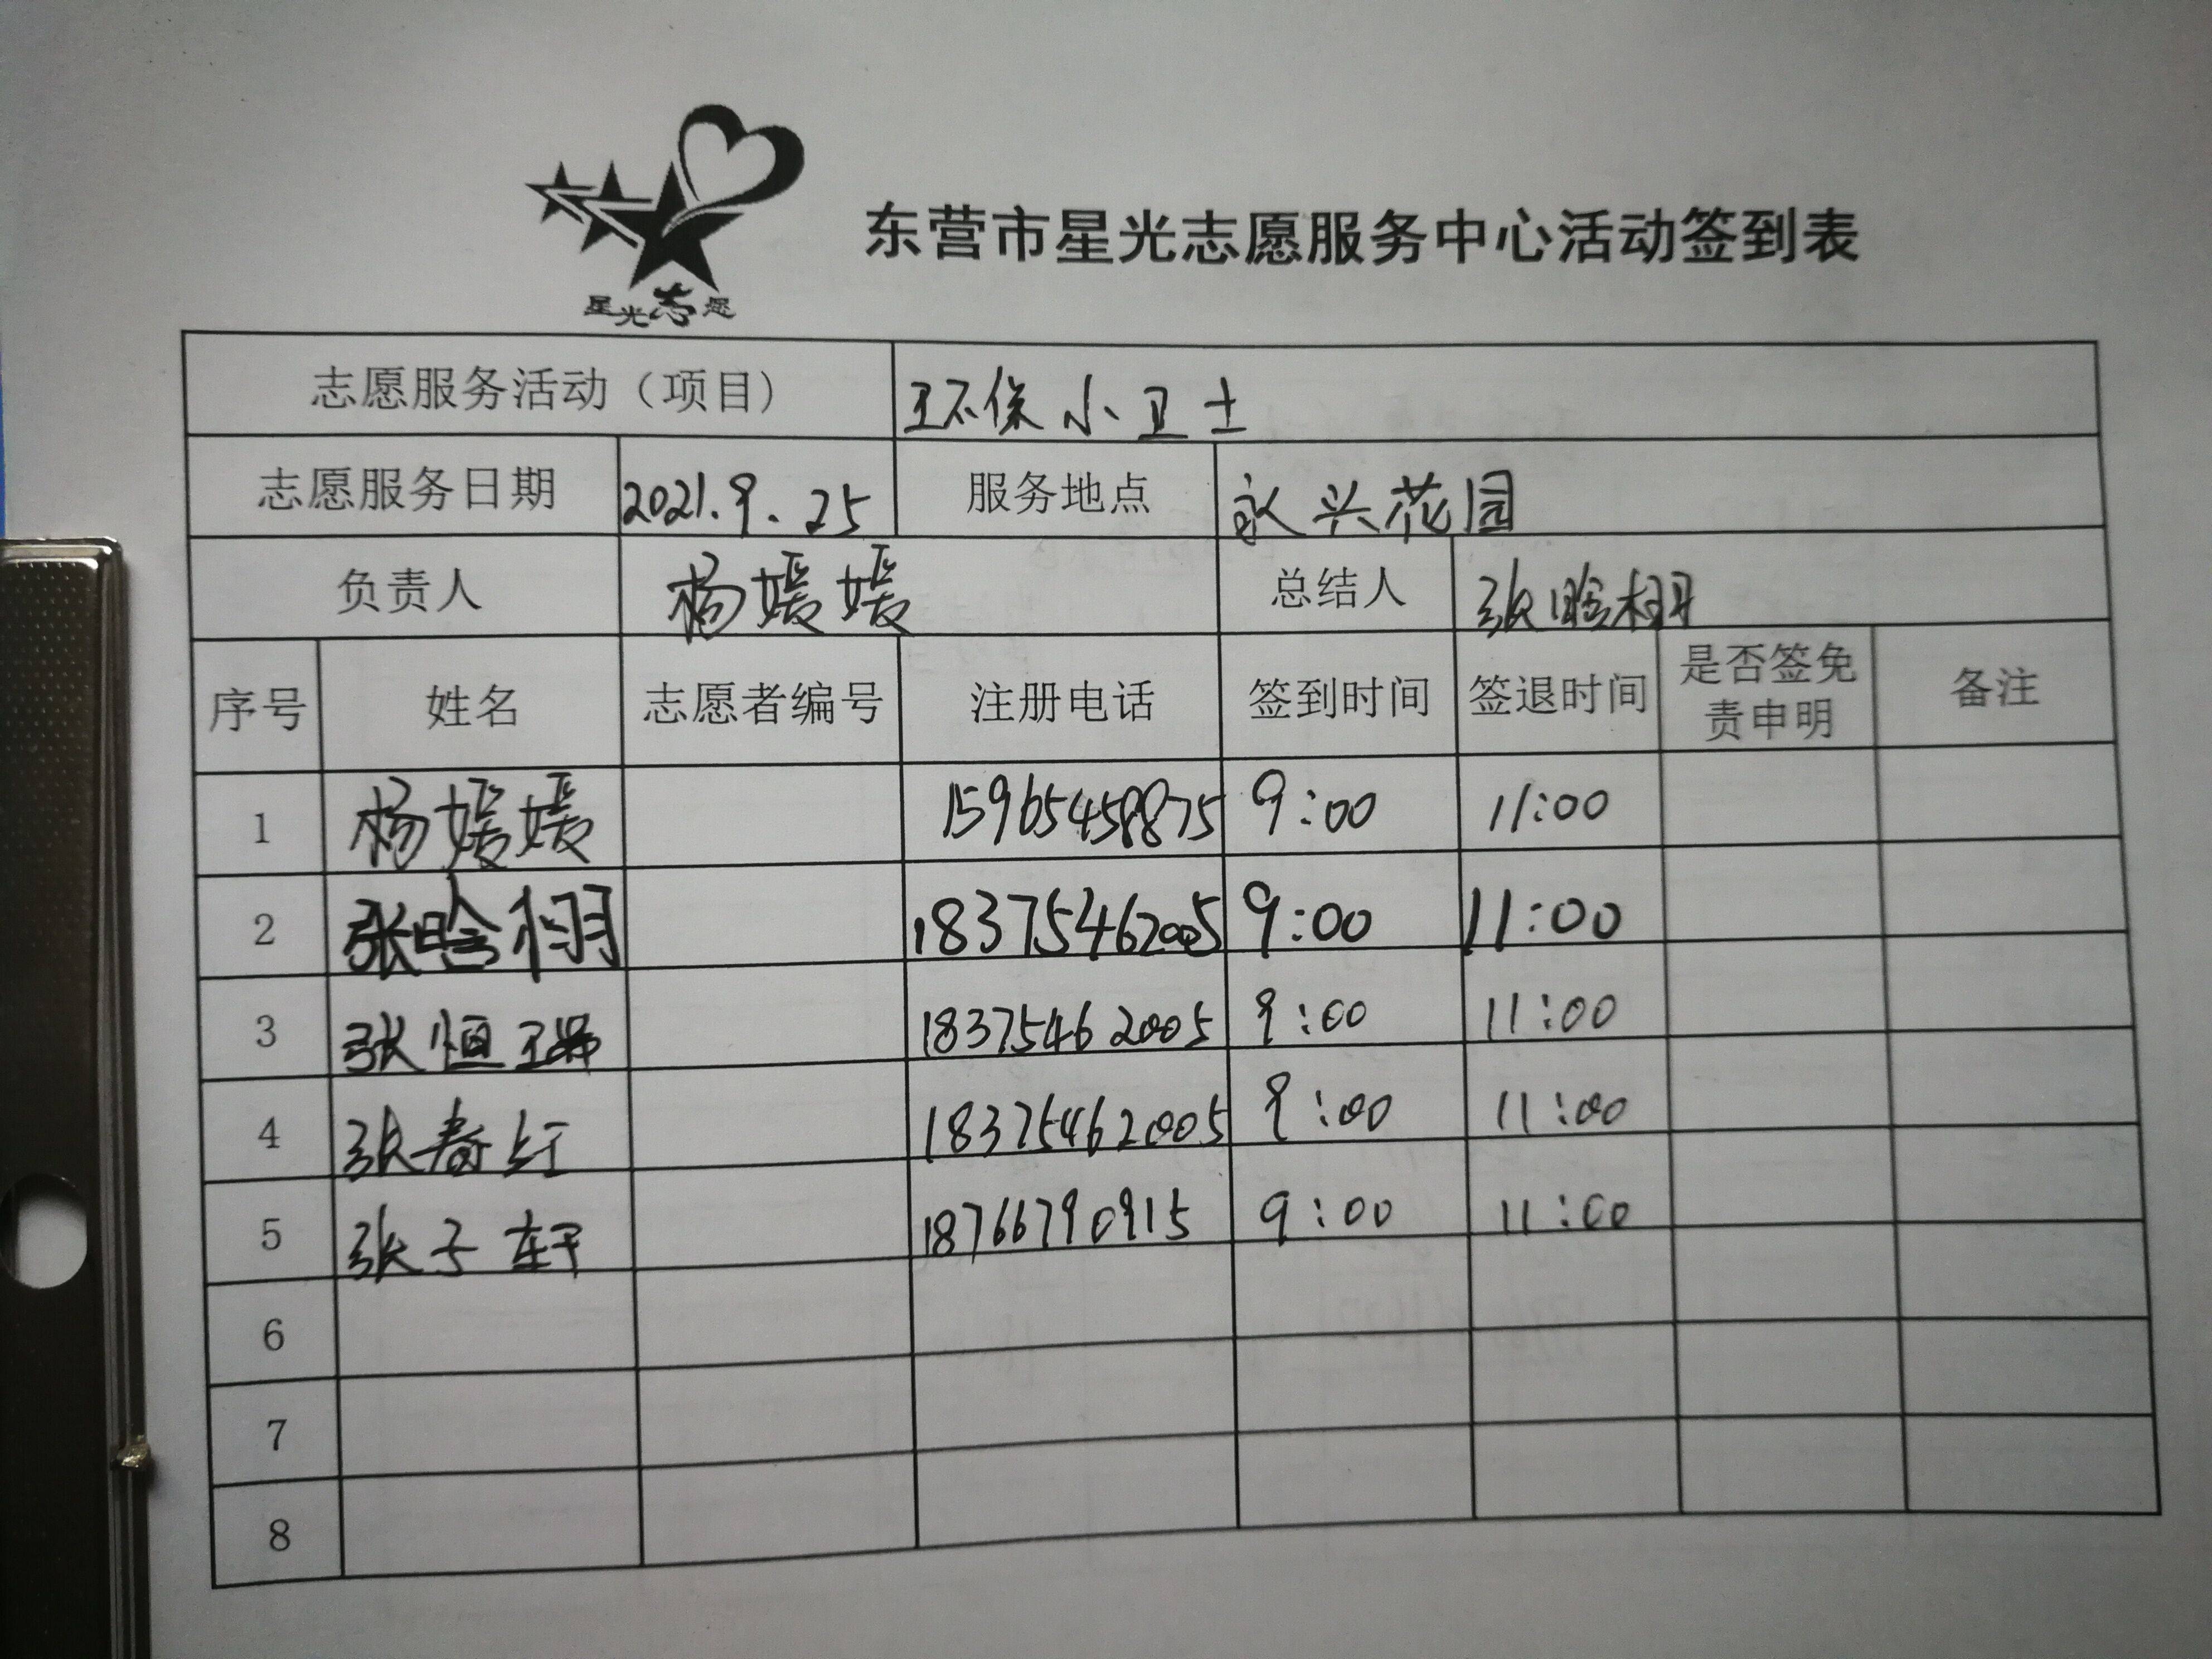 星光志愿
东营市星光志愿服务中心活动签到表
志愿服务活动（项目） 环保小卫士
志愿服务日期 2021.9.25 服务地点 永兴花园
负责人 杨媛媛 总结人 张晗栩
序号 姓名 志愿者编号 注册电话 签到时间 签退时间 是否签免责申明 备注
1 杨媛媛 15965458875 9:00 11:00
2 张晗栩 18375462005 9:00 11:00
3 张恒瑞 18375462005 9:00 11:00
4 张春红 18375462005 9:00 11:00
5 张子轩 18766790915 9:00 11:00
6
7
8